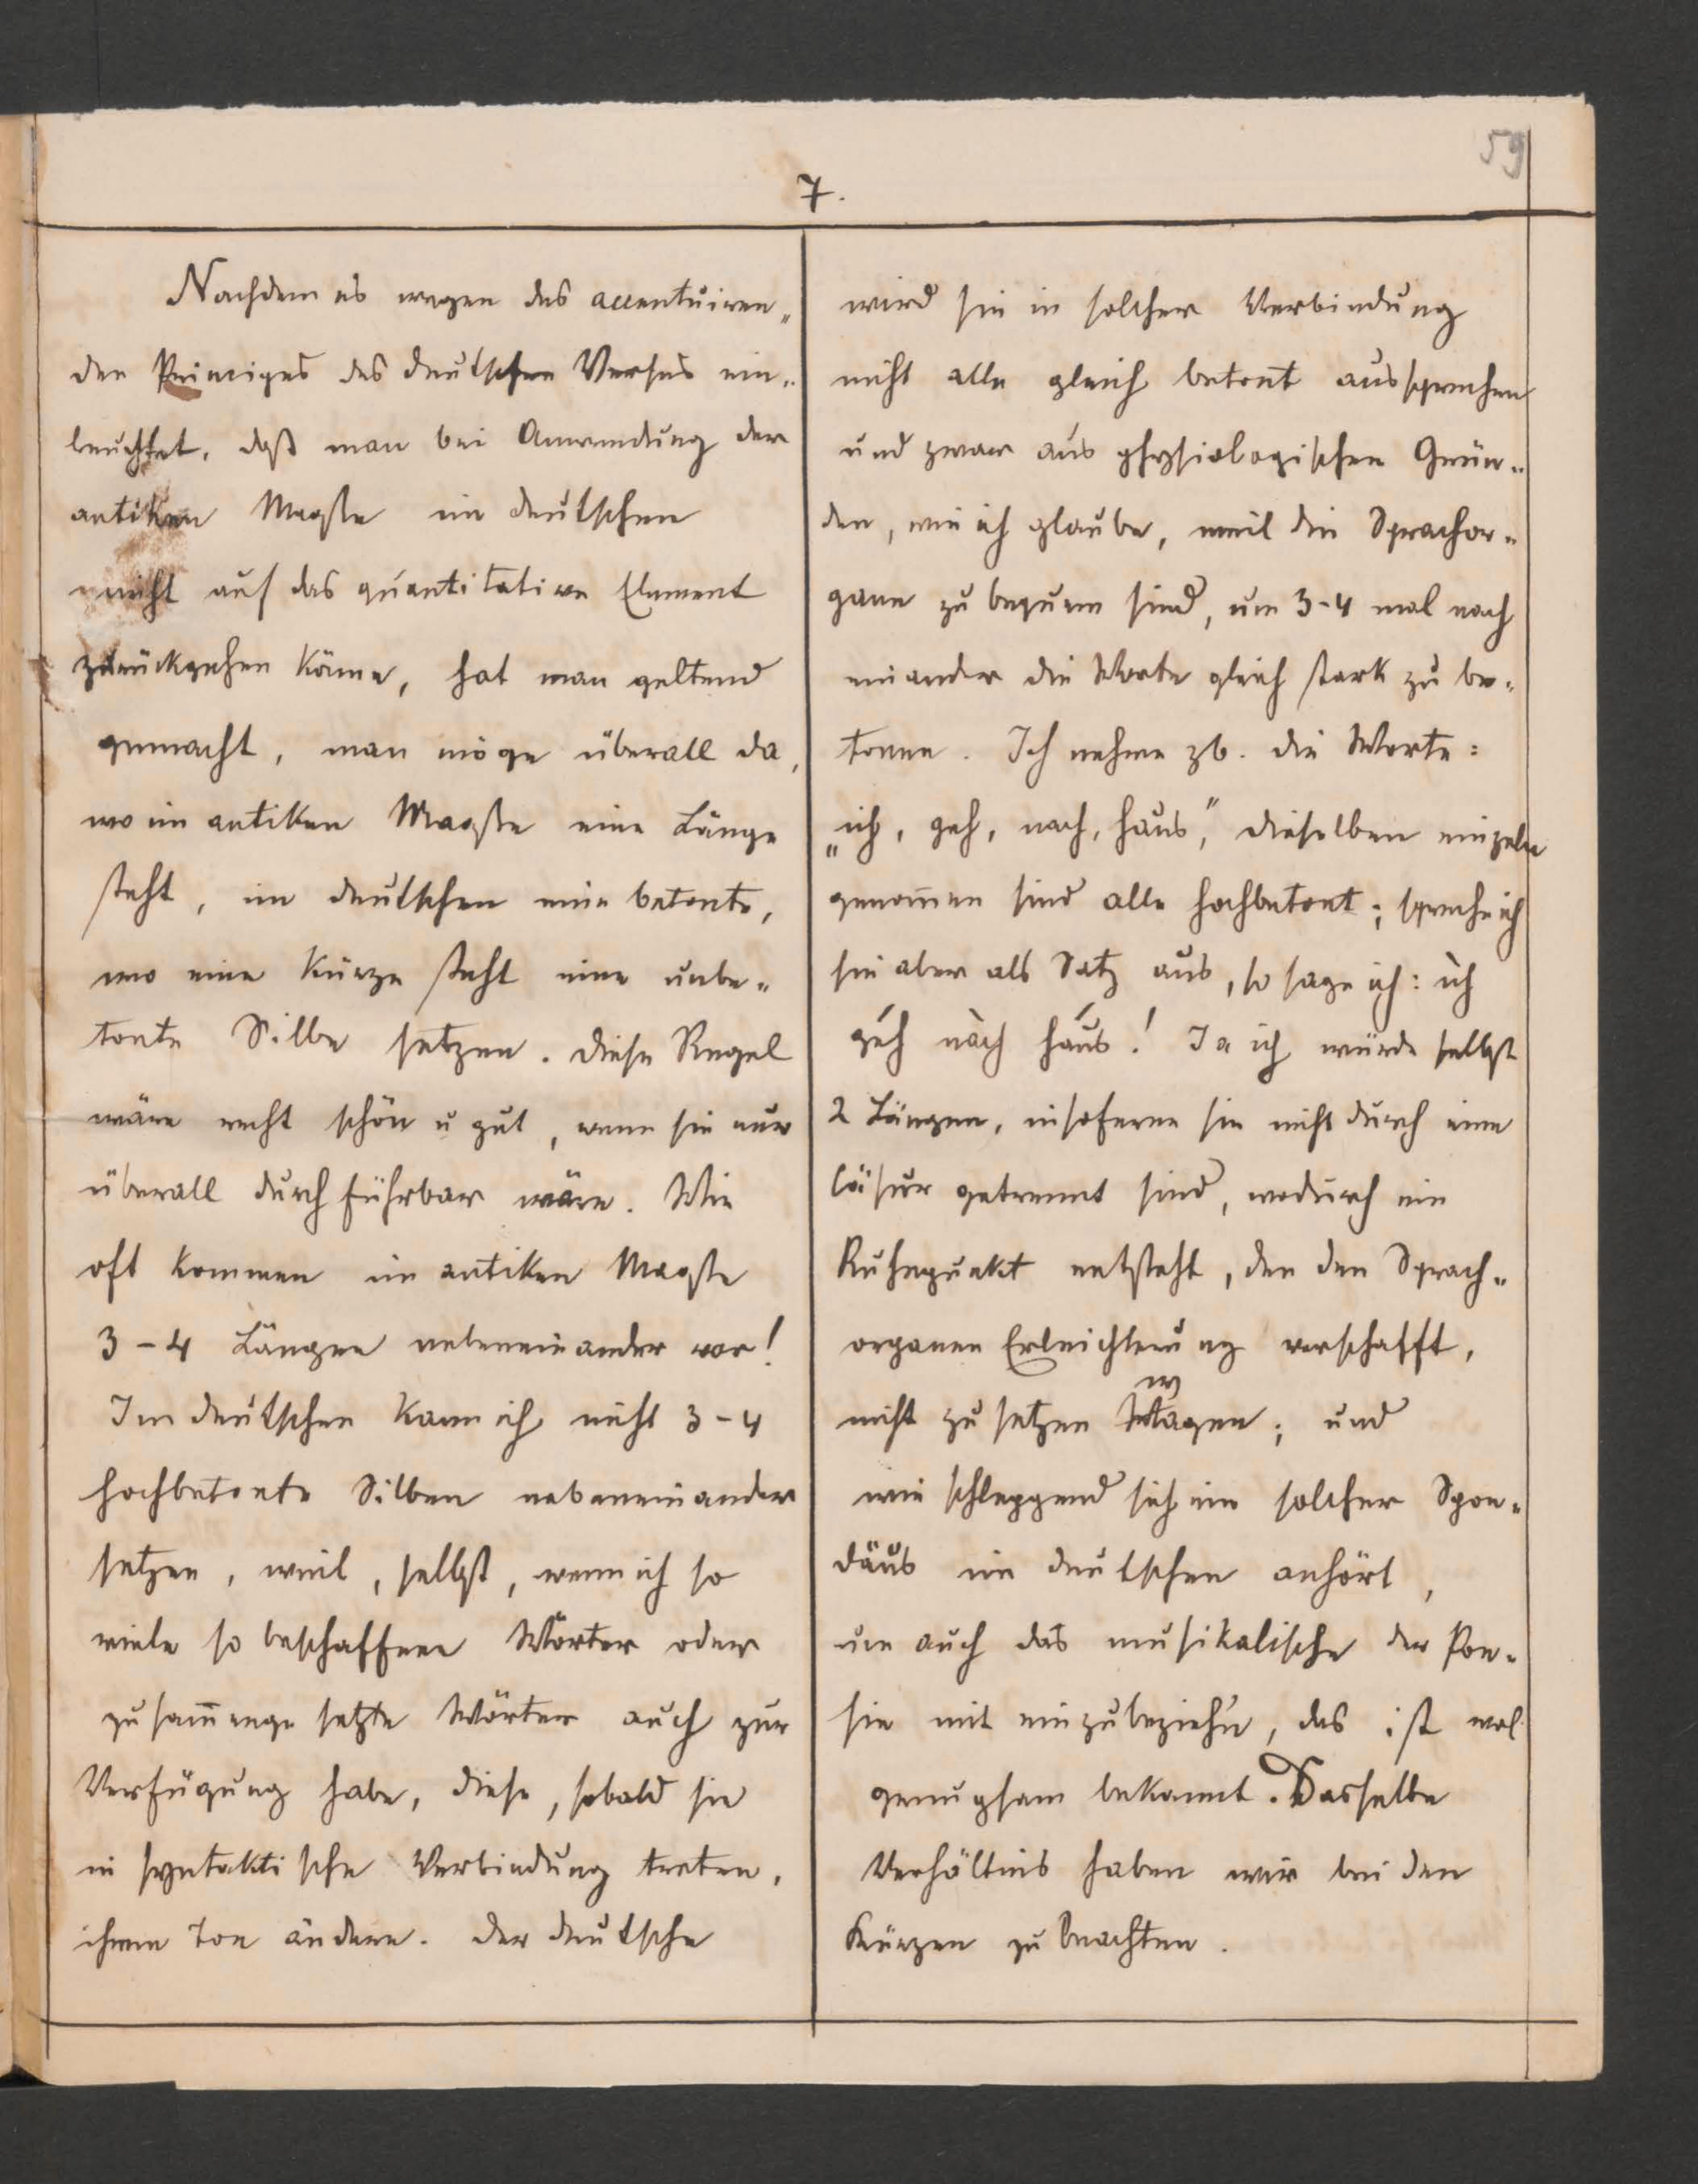 59
7.
Nachdem es wegen des accentuiren„
den Principes des deutschen Verses ein„
leuchtet, daß man bei Anwendung der
antiken Maße im deutschen
nicht auf das quantitative Element
zurückgehen käme, hat man geltend
gemacht, man möge überall da,
wo im antiken Maaße eine Länge
steht, im deutschen eine betonte,
wo eine Kürze steht eine unbe„
tonte Silbe setzen. Diese Regel
wäre recht schön u gut, wenn sie nur
überall durchführbar wäre. Wie
oft kommen im antiken Maaße
3-4 Längen nebeneinander vor!
Im deutschen kann ich nicht 3-4
hochbetonte Silben nebeneinander
setzen, weil, selbst, wenn ich so
viele so beschaffene Wörter oder
zusam̄engesetzte Wörter auch zur
Verfügung habe, diese, sobald sie
in syntaktische Verbindung treten,
ihren Ton ändern. Der deutsche
wird sie in solcher Verbindung
nicht alle gleich betont aussprechen
und zwar aus physiologischen Grün„
den, wie ich glaube, weil die Sprachor„
gane zu bequem sind, um 3-4 mal nach
einander die Worte gleich stark zu be„
tonen. Ich nehme zb. die Worte:
„ich, geh, nach, haus," dieselben einzeln
genom̄en sind alle hochbetont; spreche ich
sie aber als Satz aus, so sage ich: ìch
géh nàch háus! Ja ich würde selbst
2 Längen, insoferne sie nicht durch eine
Cäsur getrennt sind, wodurch ein
Ruhepunkt entsteht, der den Sprach„
organen Erleichterung verschafft,
nicht zu setzen wagen; und
wie schleppend sich ein solcher Spon„
däus im deutschen anhört,
um auch das musikalische der Poe„
sie mit einzubeziehn, das ist wol
genugsam bekannt. Dasselbe
Verhältnis haben wir bei den
Kürzen zu beachten.